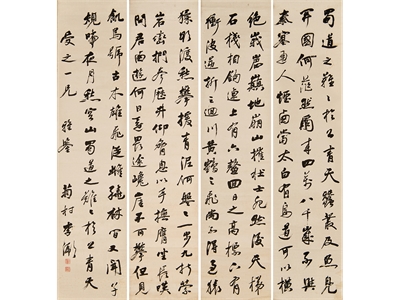 蜀道之難難於上青天蠶叢及魚鳧
開國何茫然爾來四萬八千歲不與
秦塞通人煙西當太白有鳥道可以橫
絕峨眉巔地崩山摧壯士死然後天梯
石棧相鉤連上有六龍回日之高標下有
衝波逆折之迴川黃鶴之飛尚不得過
猿猱欲渡愁攀援青泥何盤盤百步九折縈
巖巒捫參歷井仰脅息以手撫膺坐長嘆
問君西遊何時還畏途巉巖不可攀但見
悲鳥號古木雄飛從雌繞林間又聞子
規啼夜月愁空山蜀道之難難於上青天
受之一兄 雅鑒 菊村李